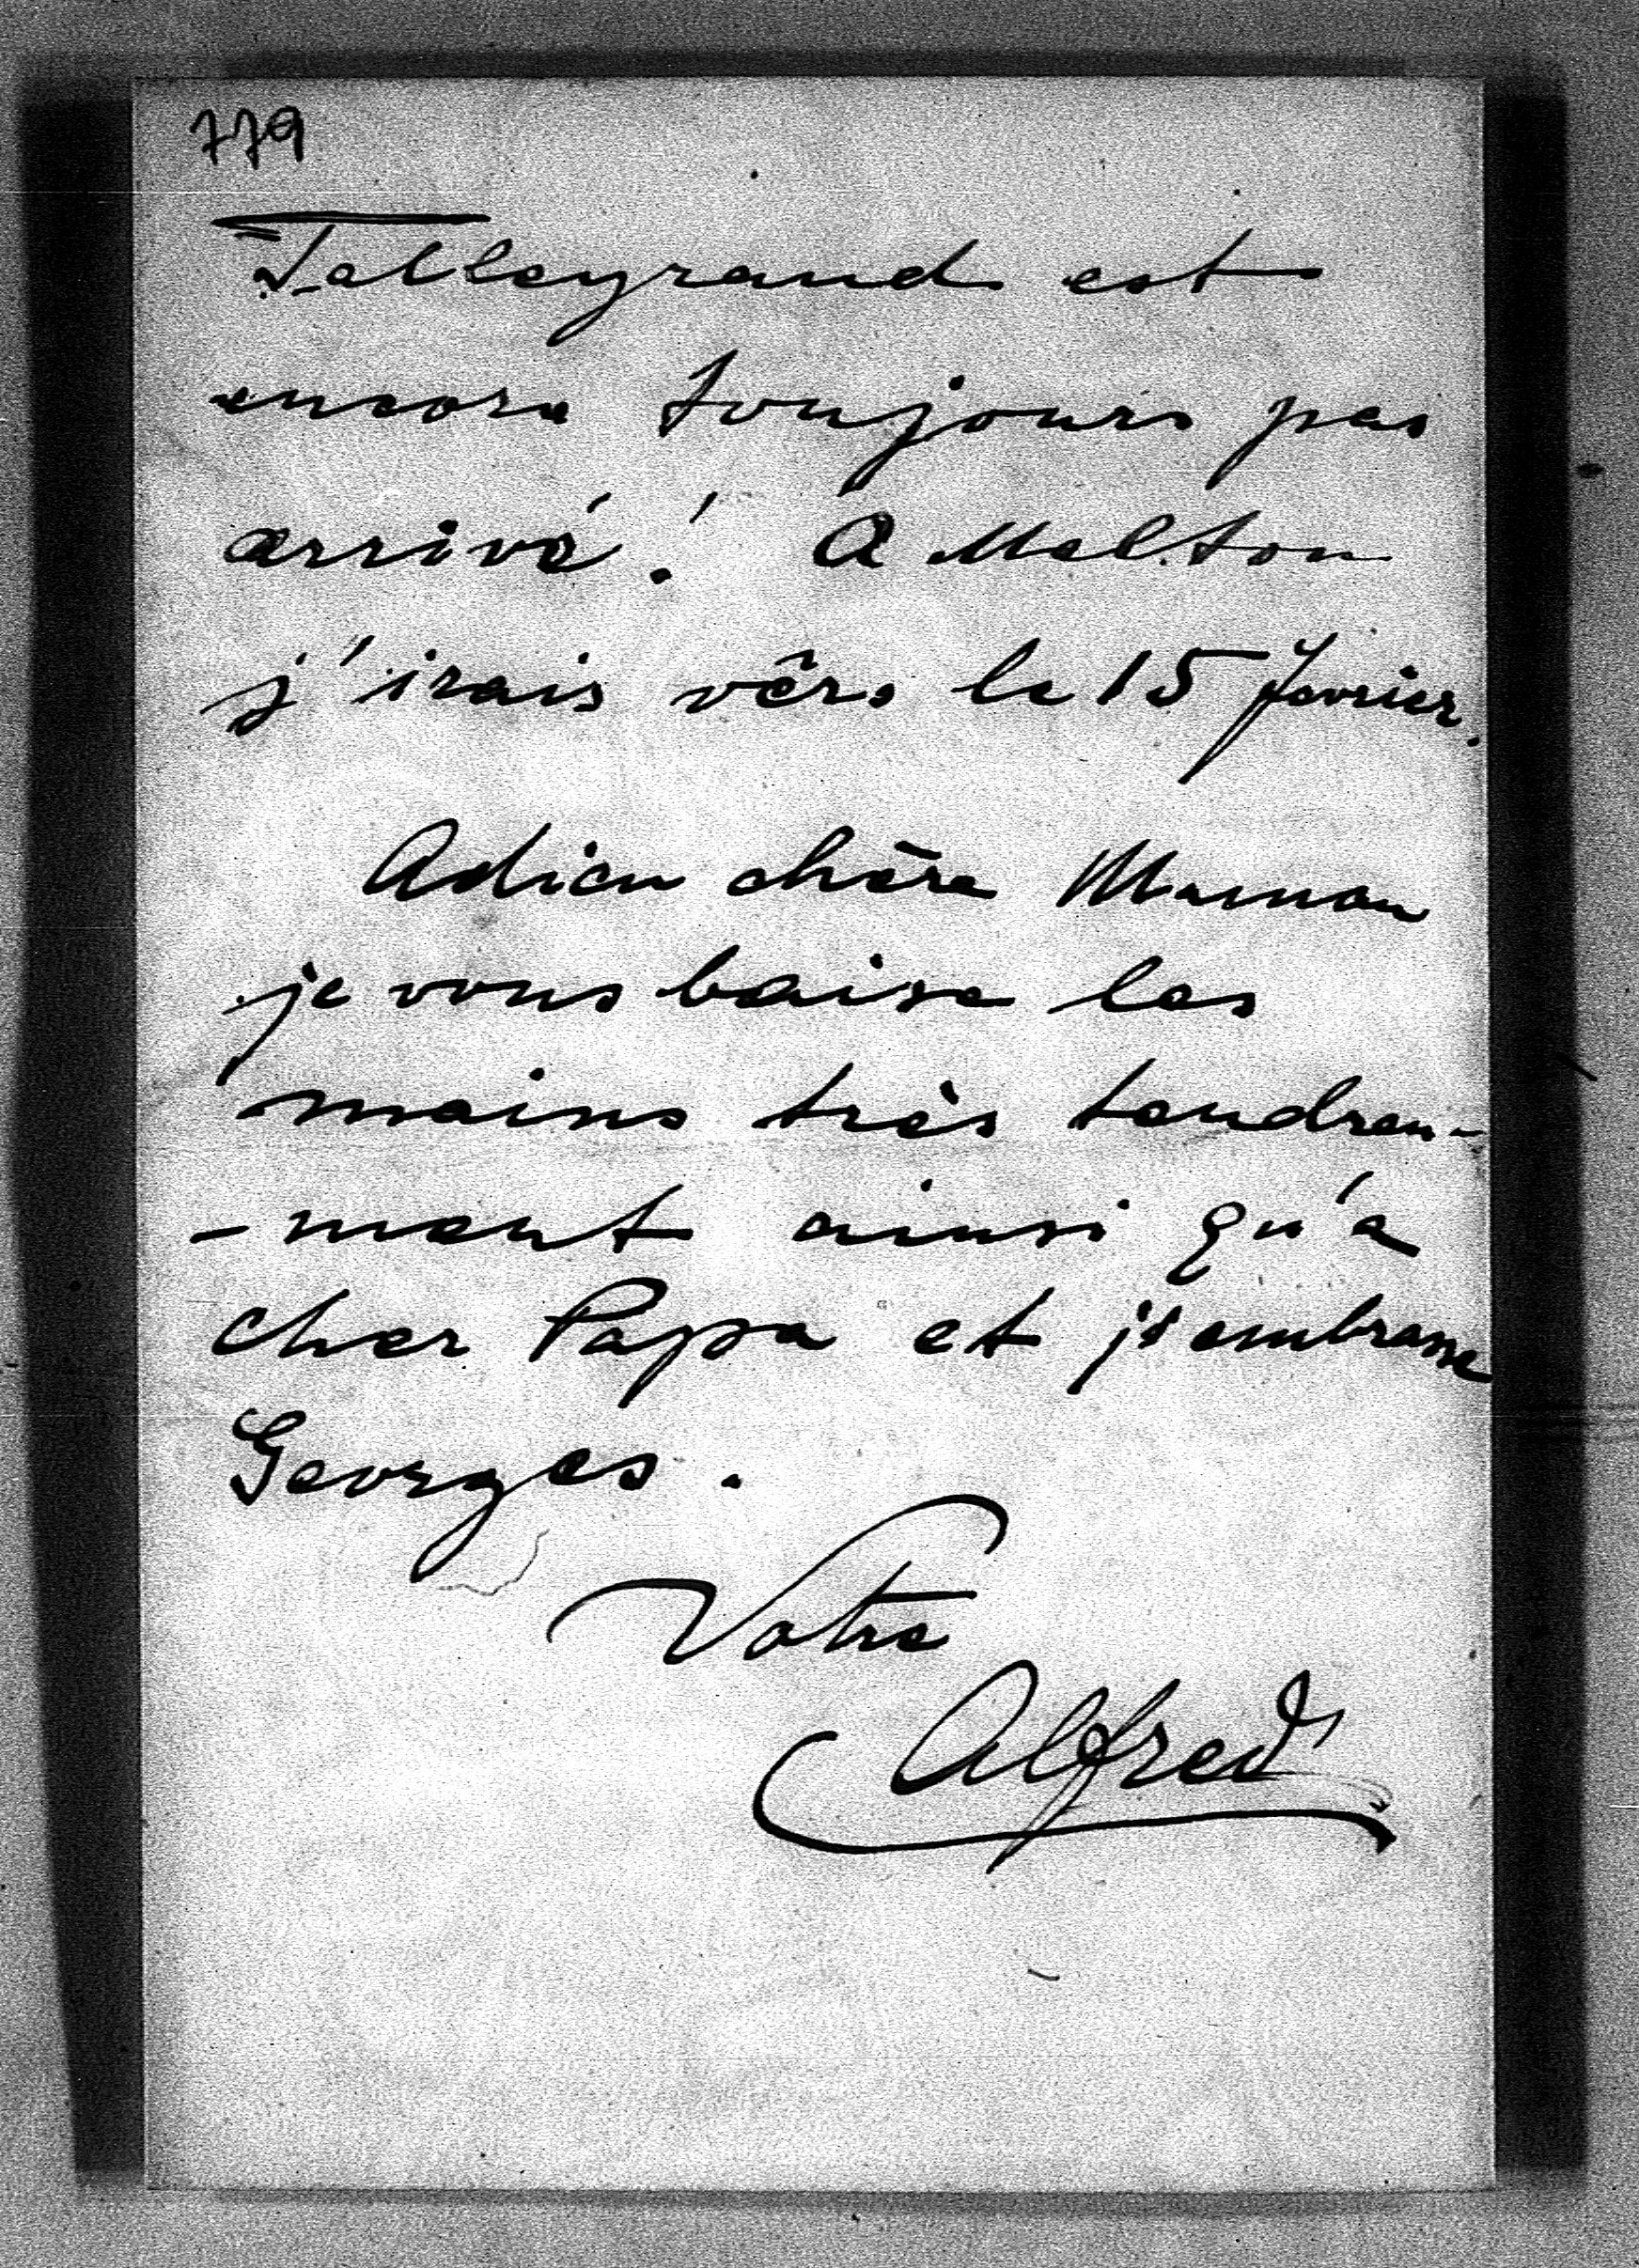 779
Talleyrand est
encore toujours pas
arrivé! A Melton
j'irais vêrs le 15 fevrier.
Adieu chère Maman
je vous baise les
mains très tendrem-
-ment ainsi qu'a
cher Papa et j'embrasse
Georges.
Votre
Alfred